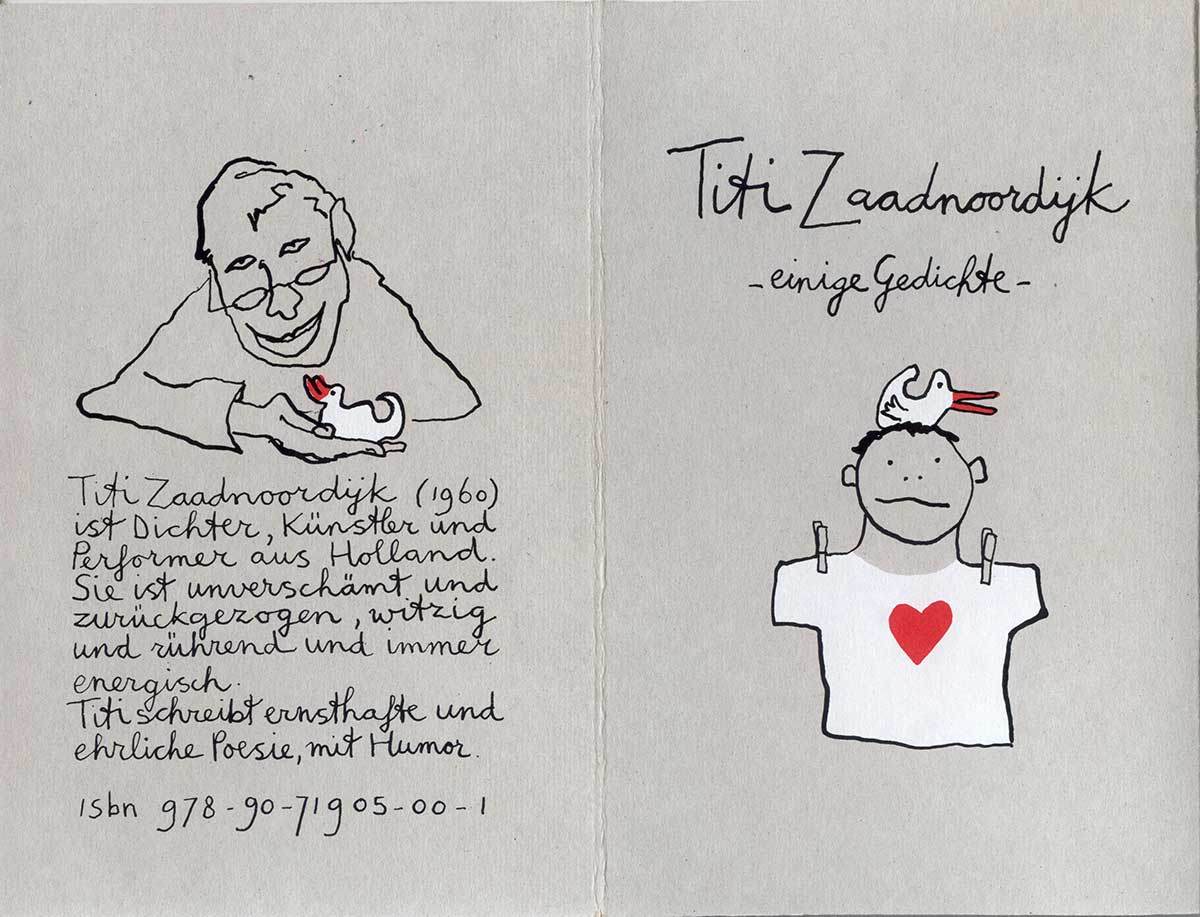 Titi Zaadnoordijk (1960)
ist Dichter, Künstler und
Performer aus Holland.
Sie ist unverschämt und
zurückgezogen, witzig
und rührend und immer
energisch.
Titi schreibt ernsthafte und
ehrliche Poesie, mit Humor.
isbn 978-90-71905-00-1
Titi Zaadnoordijk
- einige Gedichte -